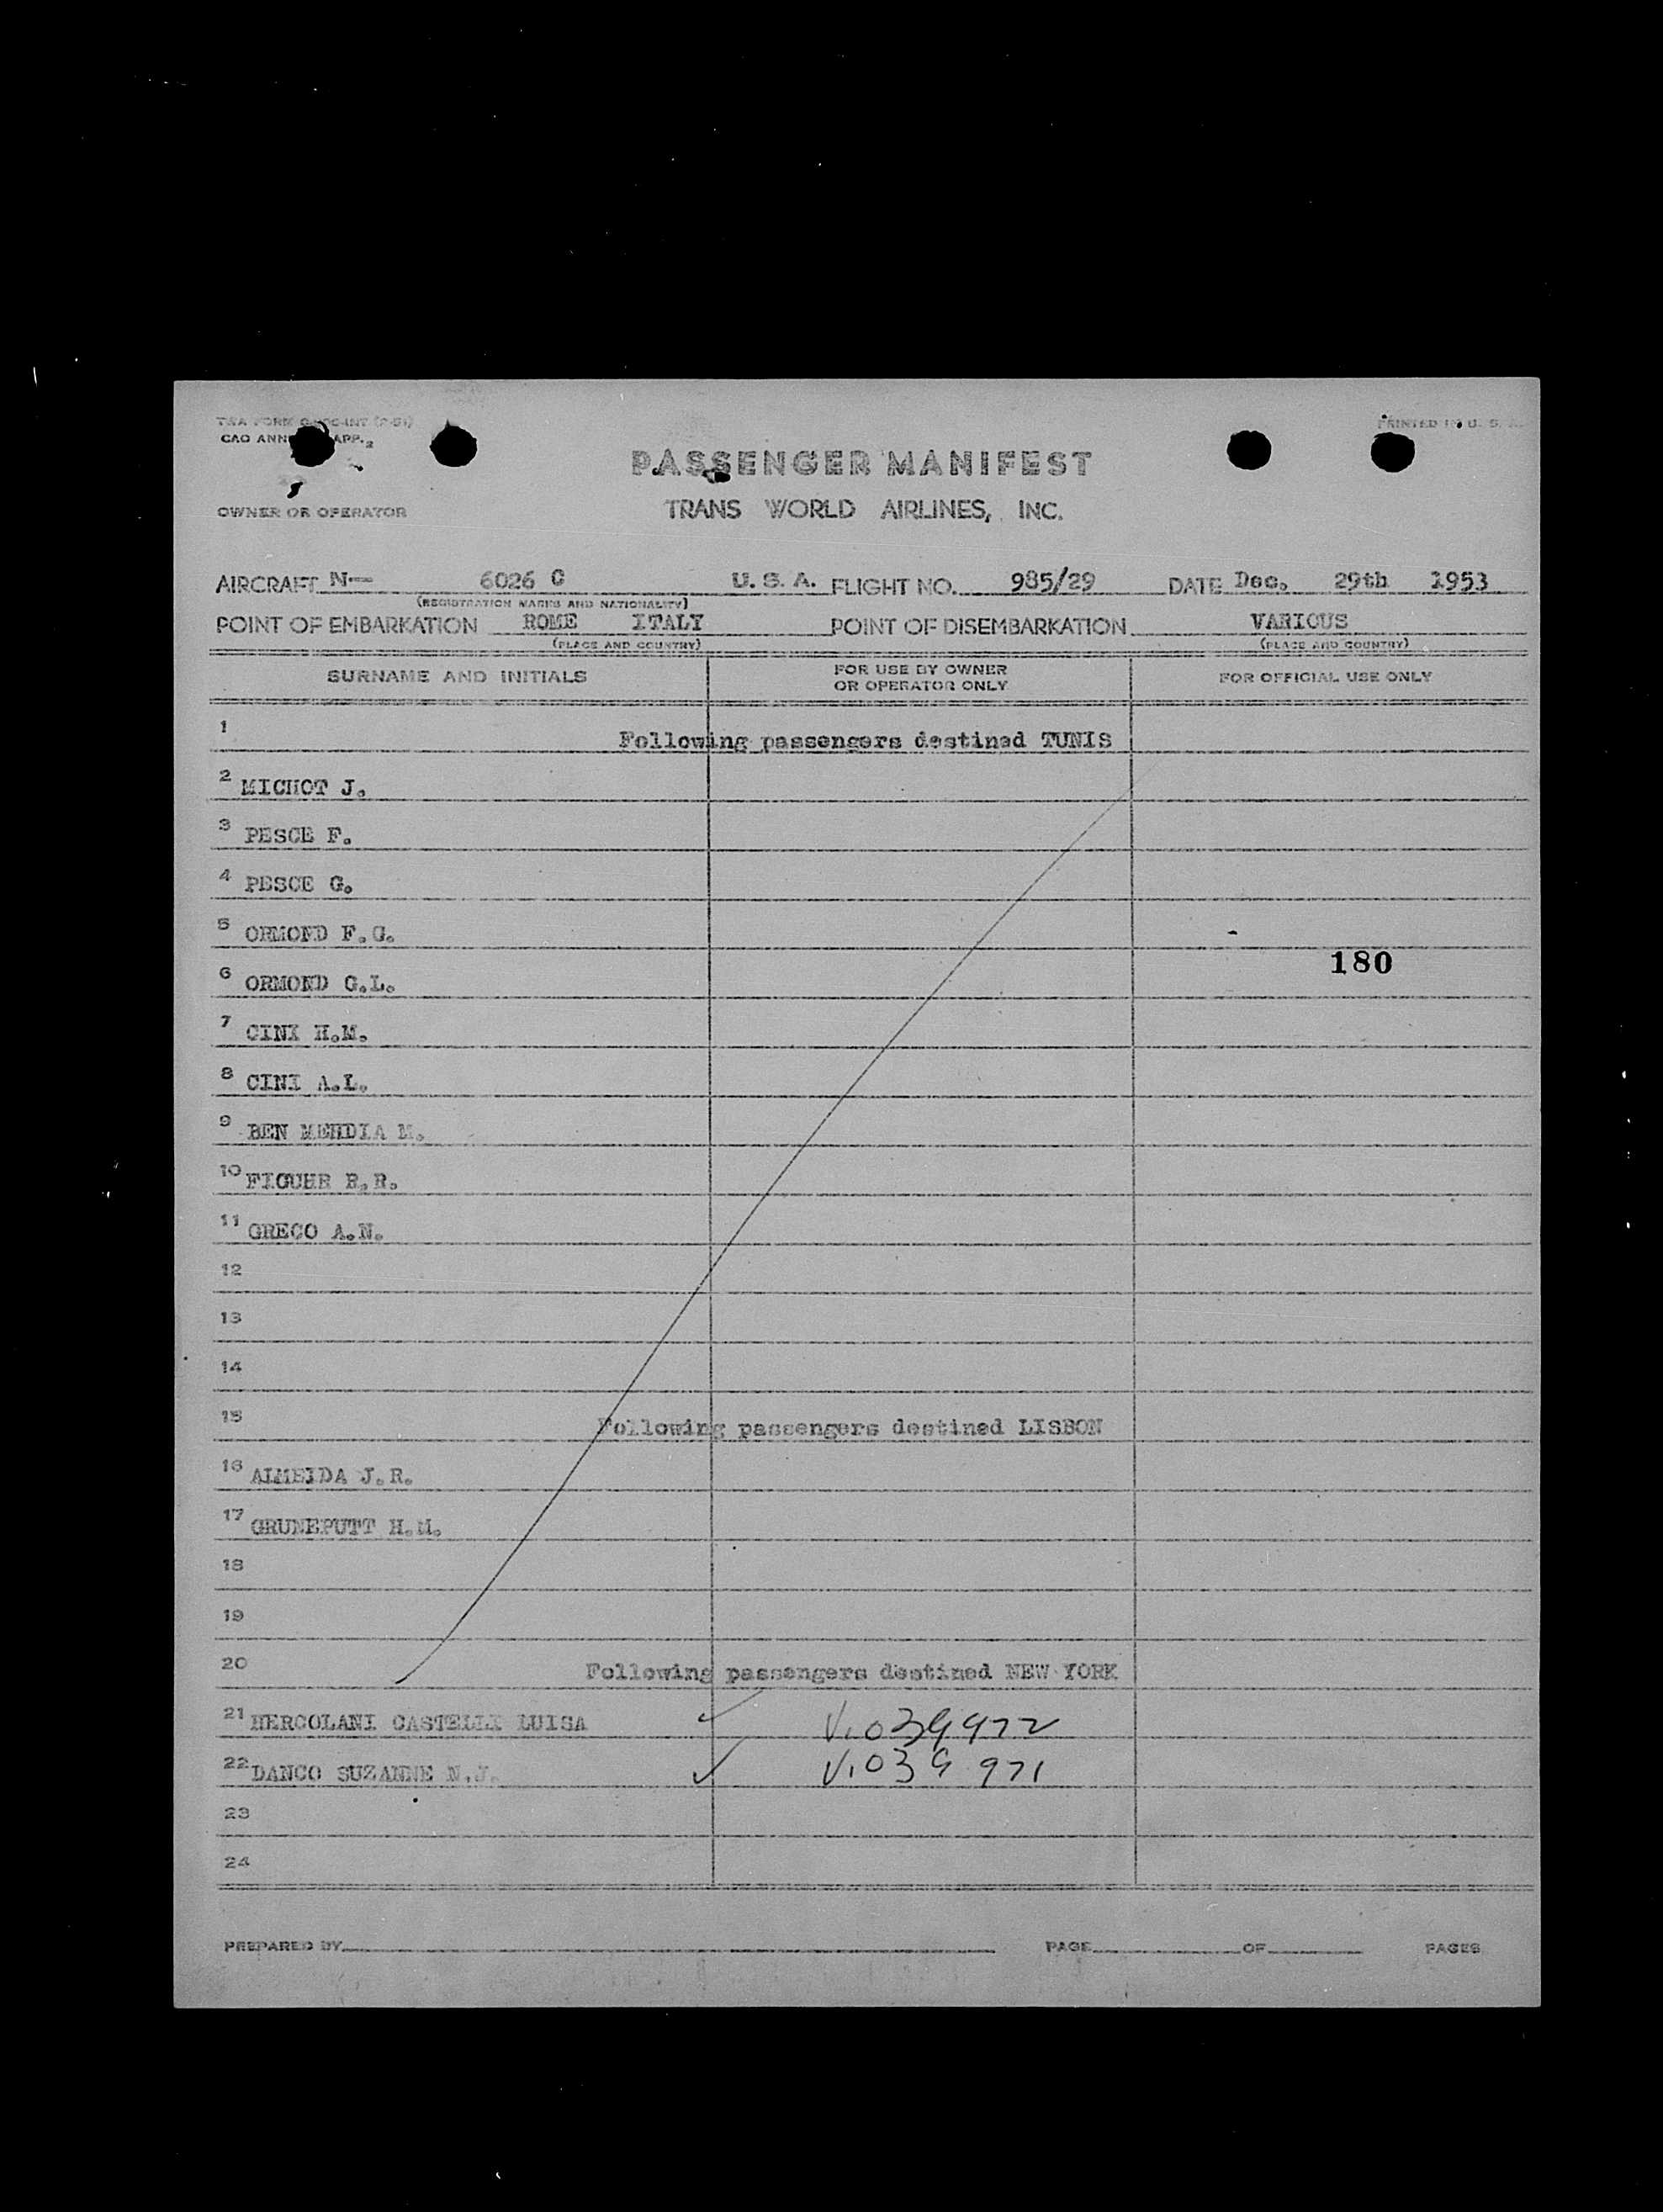 PRINTED IN U. S. A.
CAO ANN APP. 2
PASSENGER MANIFEST
OWNER OR OPERATOR TRANS WORLD AIRLINES, INC.
AIRCRAFT N— 6026 C U. S. A. FLIGHT NO. 985/29 DATE Dec. 29th 1953
(REGISTRATION MARKS AND NATIONALITY)
POINT OF EMBARKATION ROME ITALY POINT OF DISEMBARKATION VARIOUS
(PLACE AND COUNTRY) (PLACE AND COUNTRY)
SURNAME AND INITIALS FOR USE BY OWNER OR OPERATOR ONLY FOR OFFICIAL USE ONLY
1 Following passengers destined TUNIS
2 MICHOT J.
3 PESCE F.
4 PESCE G.
5 ORMOND F.G.
180
6 ORMOND G.L.
7 CINI H.M.
8 CINI A.L.
9 BEN MEHDIA M.
10 FIGUHR R.R.
11 GRECO A.N.
12
13
14
15 Following passengers destined LISBON
16 ALMEIDA J.R.
17 GRUNEPUTT H.M.
18
19
20 Following passengers destined NEW YORK
21 HERCOLANI CASTELLI LUISA ✓ V.039972
22 DANCO SUZANNE N.J. ✓ V.039971
23
24
PREPARED BY PAGE OF PAGES